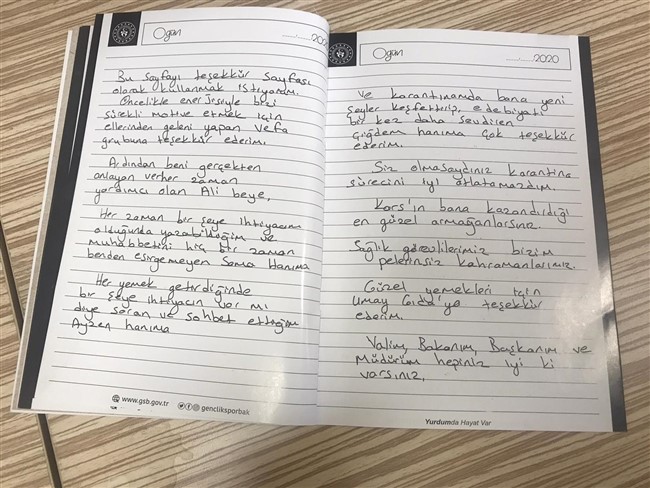 Ogün
......./......./2020
Bu sayfayı teşekkür sayfası
olarak kullanmak istiyorum.
Öncelikle enerjisiyle bizi
sürekli motive etmek için
ellerinden geleni yapan Vefa
grubuna teşekkür ederim.
Ardından beni gerçekten
anlayan ve her zaman
yardımcı olan Ali beye,
Her zaman bir şeye ihtiyacım
olduğunda yazabildiğim ve
muhabbetini hiç bir zaman
benden esirgemeyen Sema Hanıma
Her yemek getirdiğinde
bir şeye ihtiyacın var mı
diye soran ve sohbet ettiğim
Ayzen hanıma
www.gsb.gov.tr gencliksporbak
Ogün
2020
ve karantinamda bana yeni
şeyler keşfettirip, edebiyatı
bir kez daha sevdiren
Çiğdem hanıma çok teşekkür
ederim.
Siz olmasaydınız karantina
sürecini iyi atlatamazdım.
Kars'ın bana kazandırdığı
en güzel armağanlarsınız.
Sağlık görevlilerimiz bizim
pelerinsiz kahramanlarımız.
Güzel yemekleri için
Umay Gıda'ya teşekkür
ederim.
Valim, Bakanım, Başkanım ve
Müdürüm hepiniz iyi ki
varsınız,
Yurdumda Hayat Var